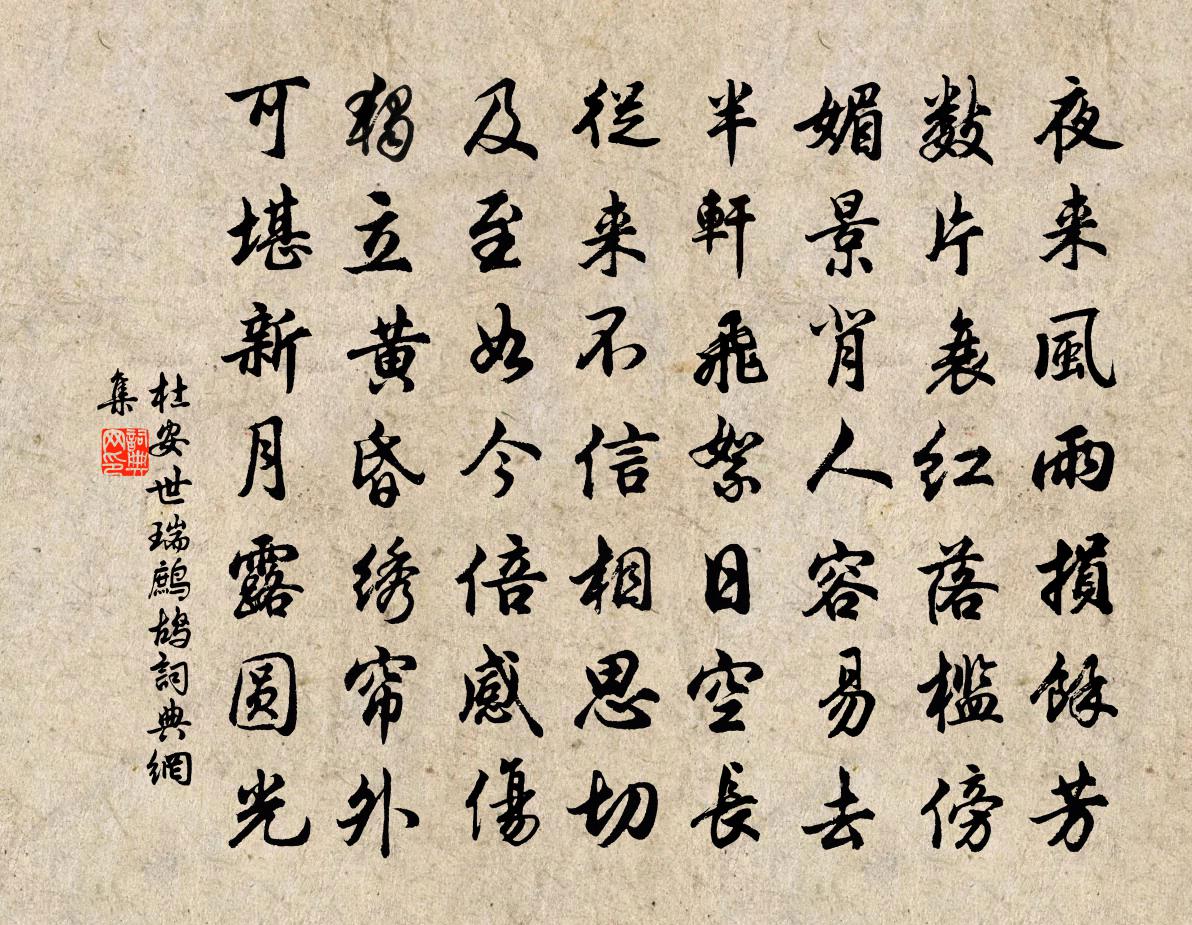 夜来風雨損餘芳
數片衰红落槛傍
媚景肖人容易去
半軒飛絮日空長
從来不信相思切
及至如今倍感傷
獨立黄昏绣帘外
可堪新月露圆光
杜安世瑞鷓鴣詞典網
集
詞典
网印